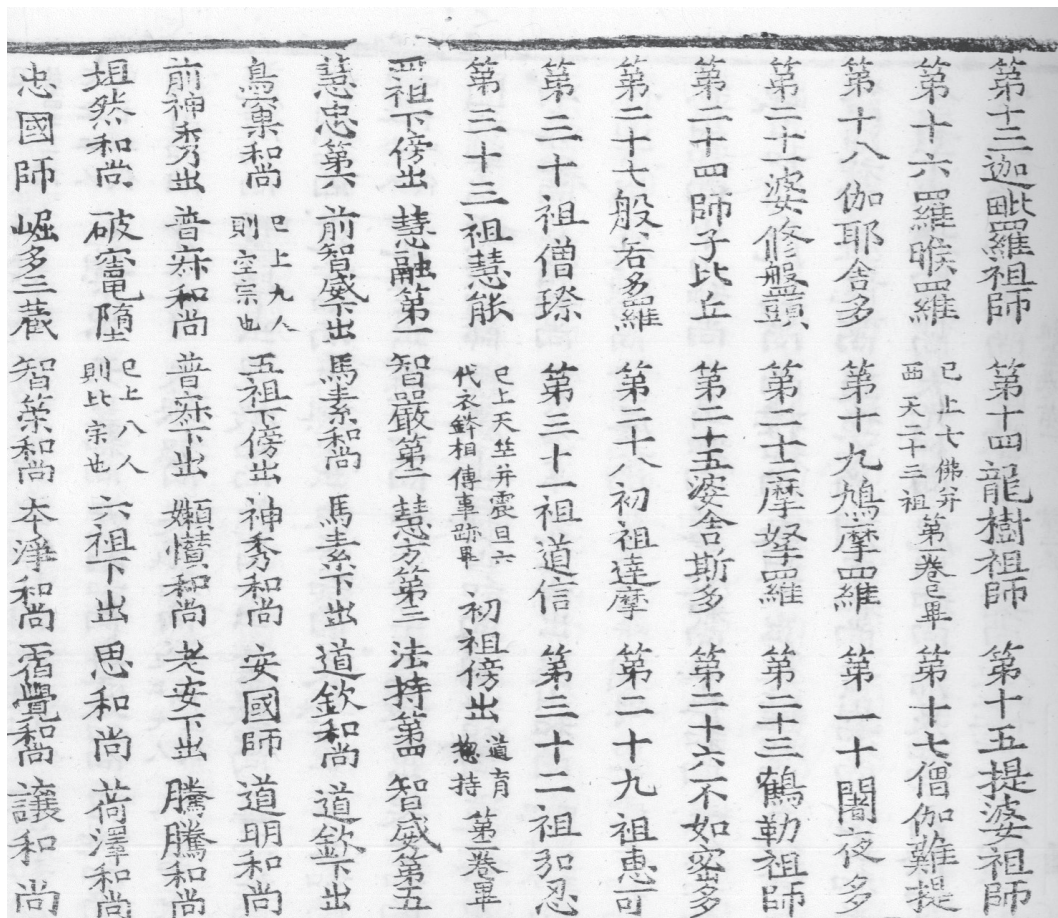 第十三迦毗羅祖師 第十四龍樹祖師 第十五提婆祖師
第十六羅睺羅 已上七佛并西天二十三祖 第一卷已畢 第十七僧伽難提
第十八伽耶舍多 第十九鳩摩羅 第二十闍夜多
第二十一婆修盤頭 第二十二摩拏羅 第二十三鶴勒祖師
第二十四師子比丘 第二十五婆舍斯多 第二十六不如密多
第二十七般若多羅 第二十八初祖達摩 第二十九祖惠可
第三十祖僧璨 第三十一祖道信 第三十二祖弘忍
第三十三祖慧能 已上天竺并震旦六代衣鉢相傳事跡畢 初祖傍出 道育 惣持 第二卷畢
四祖下傍出 慧融第一 智嚴第二 慧方第三 法持第四 智威第五
慧忠第六 前智威出 馬素和尚 馬素下出 道欽和尚 道欽下出
鳥窠和尚 已上九人則空宗也 五祖下傍出 神秀和尚 安國師 道明和尚
前神秀出 普寂和尚 普寂下出 嬾懶和尚 老安下出 騰騰和尚
坦然和尚 破竈墮 已上八人則比宗也 六祖下出 思和尚 荷澤和尚
忠國師 崛多三藏 智策和尚 本淨和尚 宿覺和尚 讓和尚